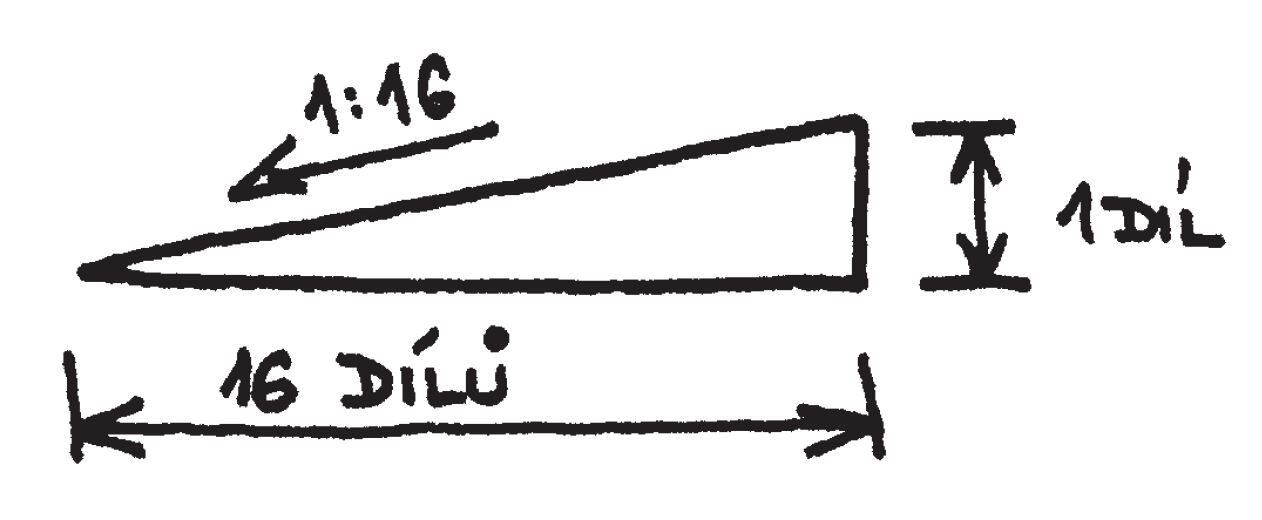 1:16
1 DÍL
16 DÍLŮ